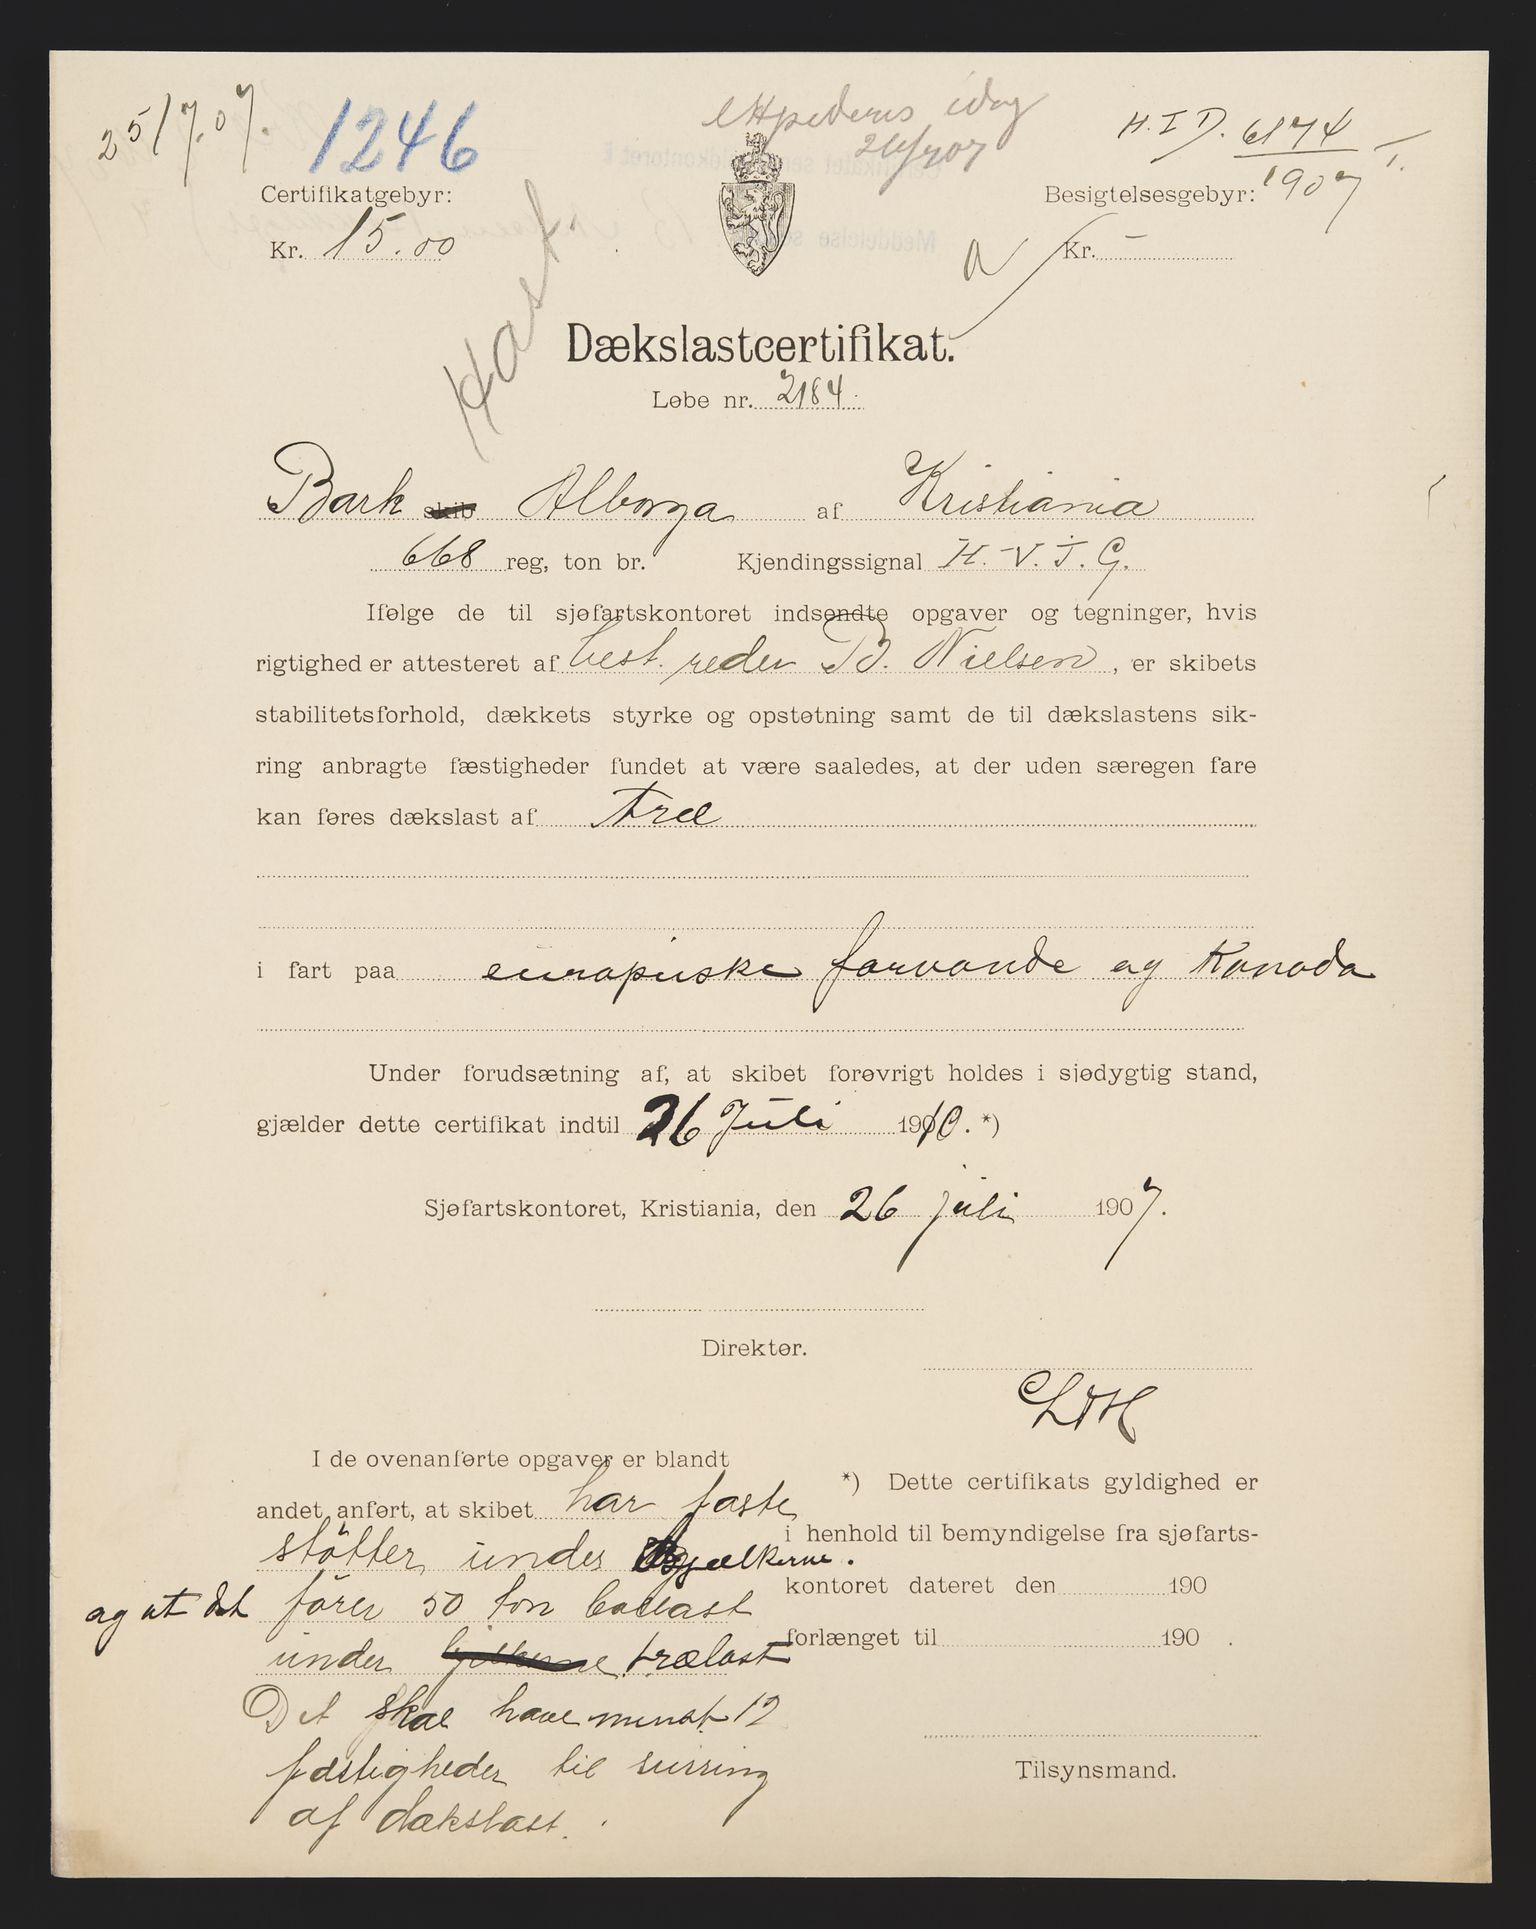 25/7.07.
1246
Expederes idag
26/7 07
H. I D. 6174 I.
1907
Certifikatgebyr:
Kr. 15.00
Besigtelsesgebyr:
Kr. –
Hast.
Dækslastcertifikat.
Løbe nr. 2184.
Bark skib Alborga af Kristiania
668 reg, ton br. Kjendingssignal H. V. J. G.
Ifølge de til sjøfartskontoret indsendte opgaver og tegninger, hvis
rigtighed er attesteret af best. reder B. Nielsen, er skibets
stabilitetsforhold, dækkets styrke og opstøtning samt de til dækslastens sik-
ring anbragte fæstigheder fundet at være saaledes, at der uden særegen fare
kan føres dækslast af Træ
i fart paa europæiske farvande og Kanada
Under forudsætning af, at skibet forøvrigt holdes i sjødygtig stand,
gjælder dette certifikat indtil 26 Juli 1910. *)
Sjøfartskontoret, Kristiania, den 26 juli 1907.
Direktør.
I de ovenanførte opgaver er blandt
andet anført, at skibet har faste
støtter under bjælkerne.
og at det fører 50 ton ballast
under trælast
Det skal have minst 12
fæstigheder til surring
af dækslast.
*) Dette certifikats gyldighed er
i henhold til bemyndigelse fra sjøfarts-
kontoret dateret den 190
forlænget til 190 .
Tilsynsmand.